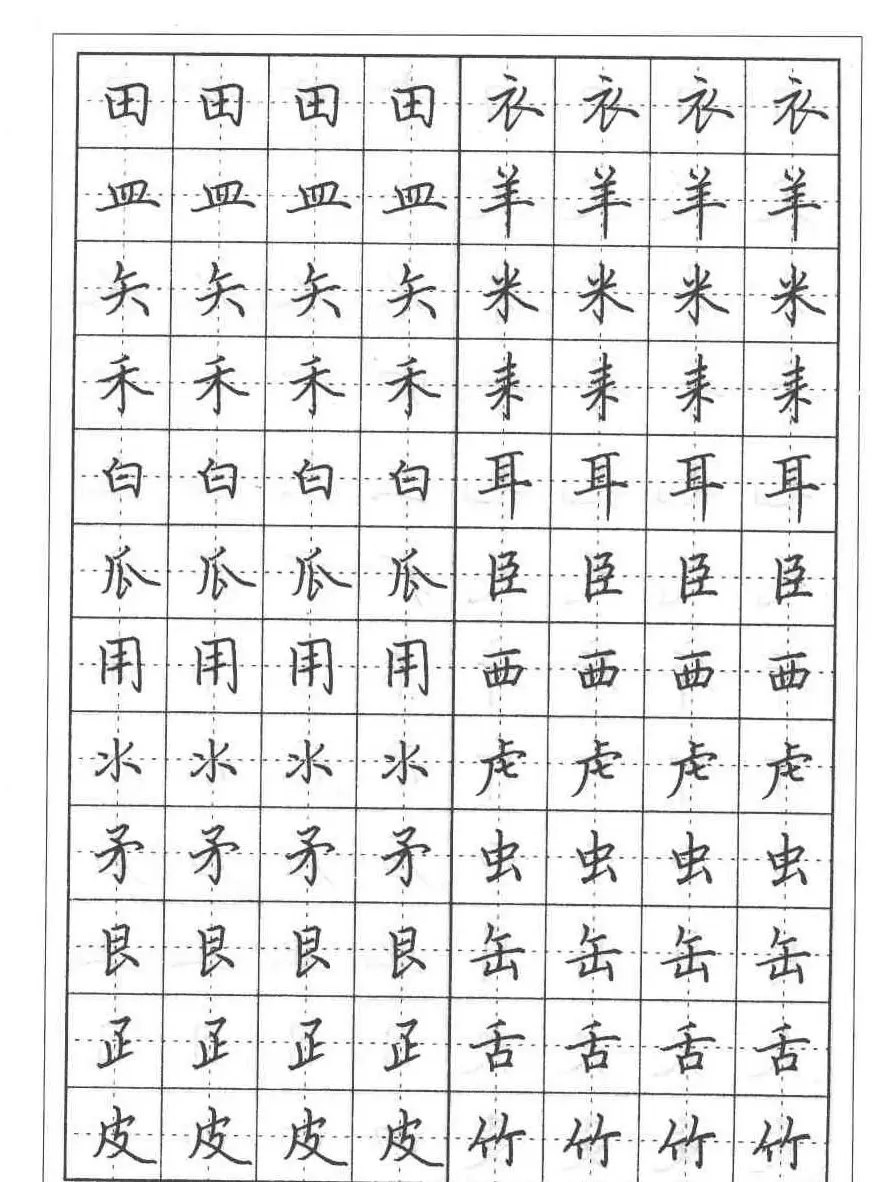 田田田田衣衣衣衣
皿皿皿皿羊羊羊羊
矢矢矢矢米米米米
禾禾禾禾耒耒耒耒
白白白白耳耳耳耳
瓜瓜瓜瓜臣臣臣臣
用用用用西西西西
氺氺氺氺虍虍虍虍
矛矛矛矛虫虫虫虫
艮艮艮艮缶缶缶缶
疋疋疋疋舌舌舌舌
皮皮皮皮竹竹竹竹